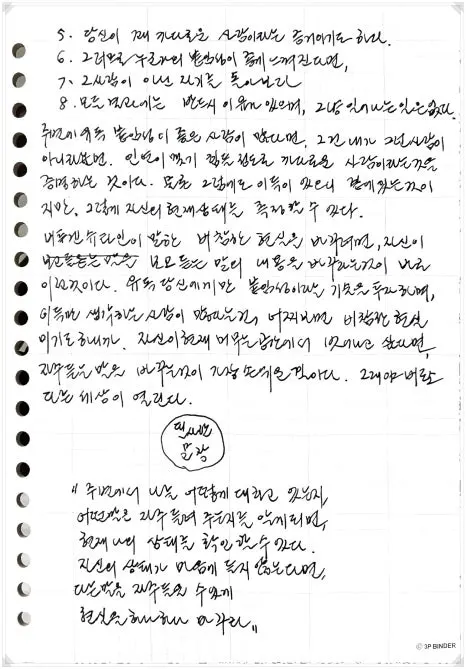 5. 당신이 꽤 까다로운 사람이라는 증거이기도 하다.
6. 그러므로 누군가의 불안감이 쉽게 느껴진다면,
7. 그 사람이 아닌 자기를 돌아보라
8. 모든 멀리에는 반드시 이유가 있으며, 그냥 일어나는 일은 없다.
주변에 유독 불안감이 좋은 사람이 많다면, 그건 내가 그런 사람이
아니라면, 인연이 맺기 힘든 정도로 까다로운 사람이라는 것을
증명하는 것이다. 물론 그럼에도 이득이 있으니 곁에 있는 것이
지만, 그렇게 자신의 현재 상태를 측정할 수 있다.
비트겐슈타인이 말하는 비참한 현실을 바꾸려면, 자신이
모으는 말의 내용을 바꾸라는 것이 바로
이런 것이다. 유독 당신에게만 불안감이라는 기分을 투자하며,
이득만 생각하는 사람이 많다는 건, 어찌보면 비참한 현실
이기도 하니까. 자신이 현재 머무는 공간에서 벗어나고 싶다면,
자주 듣는 말을 바꾸는 것이 가장 손쉬운 길이다. 그래야 비로소
다른 세상이 열린다.
필사
문장
"주변에서 나를 어떻게 대하고 있는지,
어떤 말을 자주 들려 주는지를 알게 되면,
현재 나의 상태를 확인할 수 있다.
자신의 상태가 마음에 들지 않는다면,
다른 말을 자주 들을 수 있게
현실을 하나하나 바꿔라."
© 3P BINDER